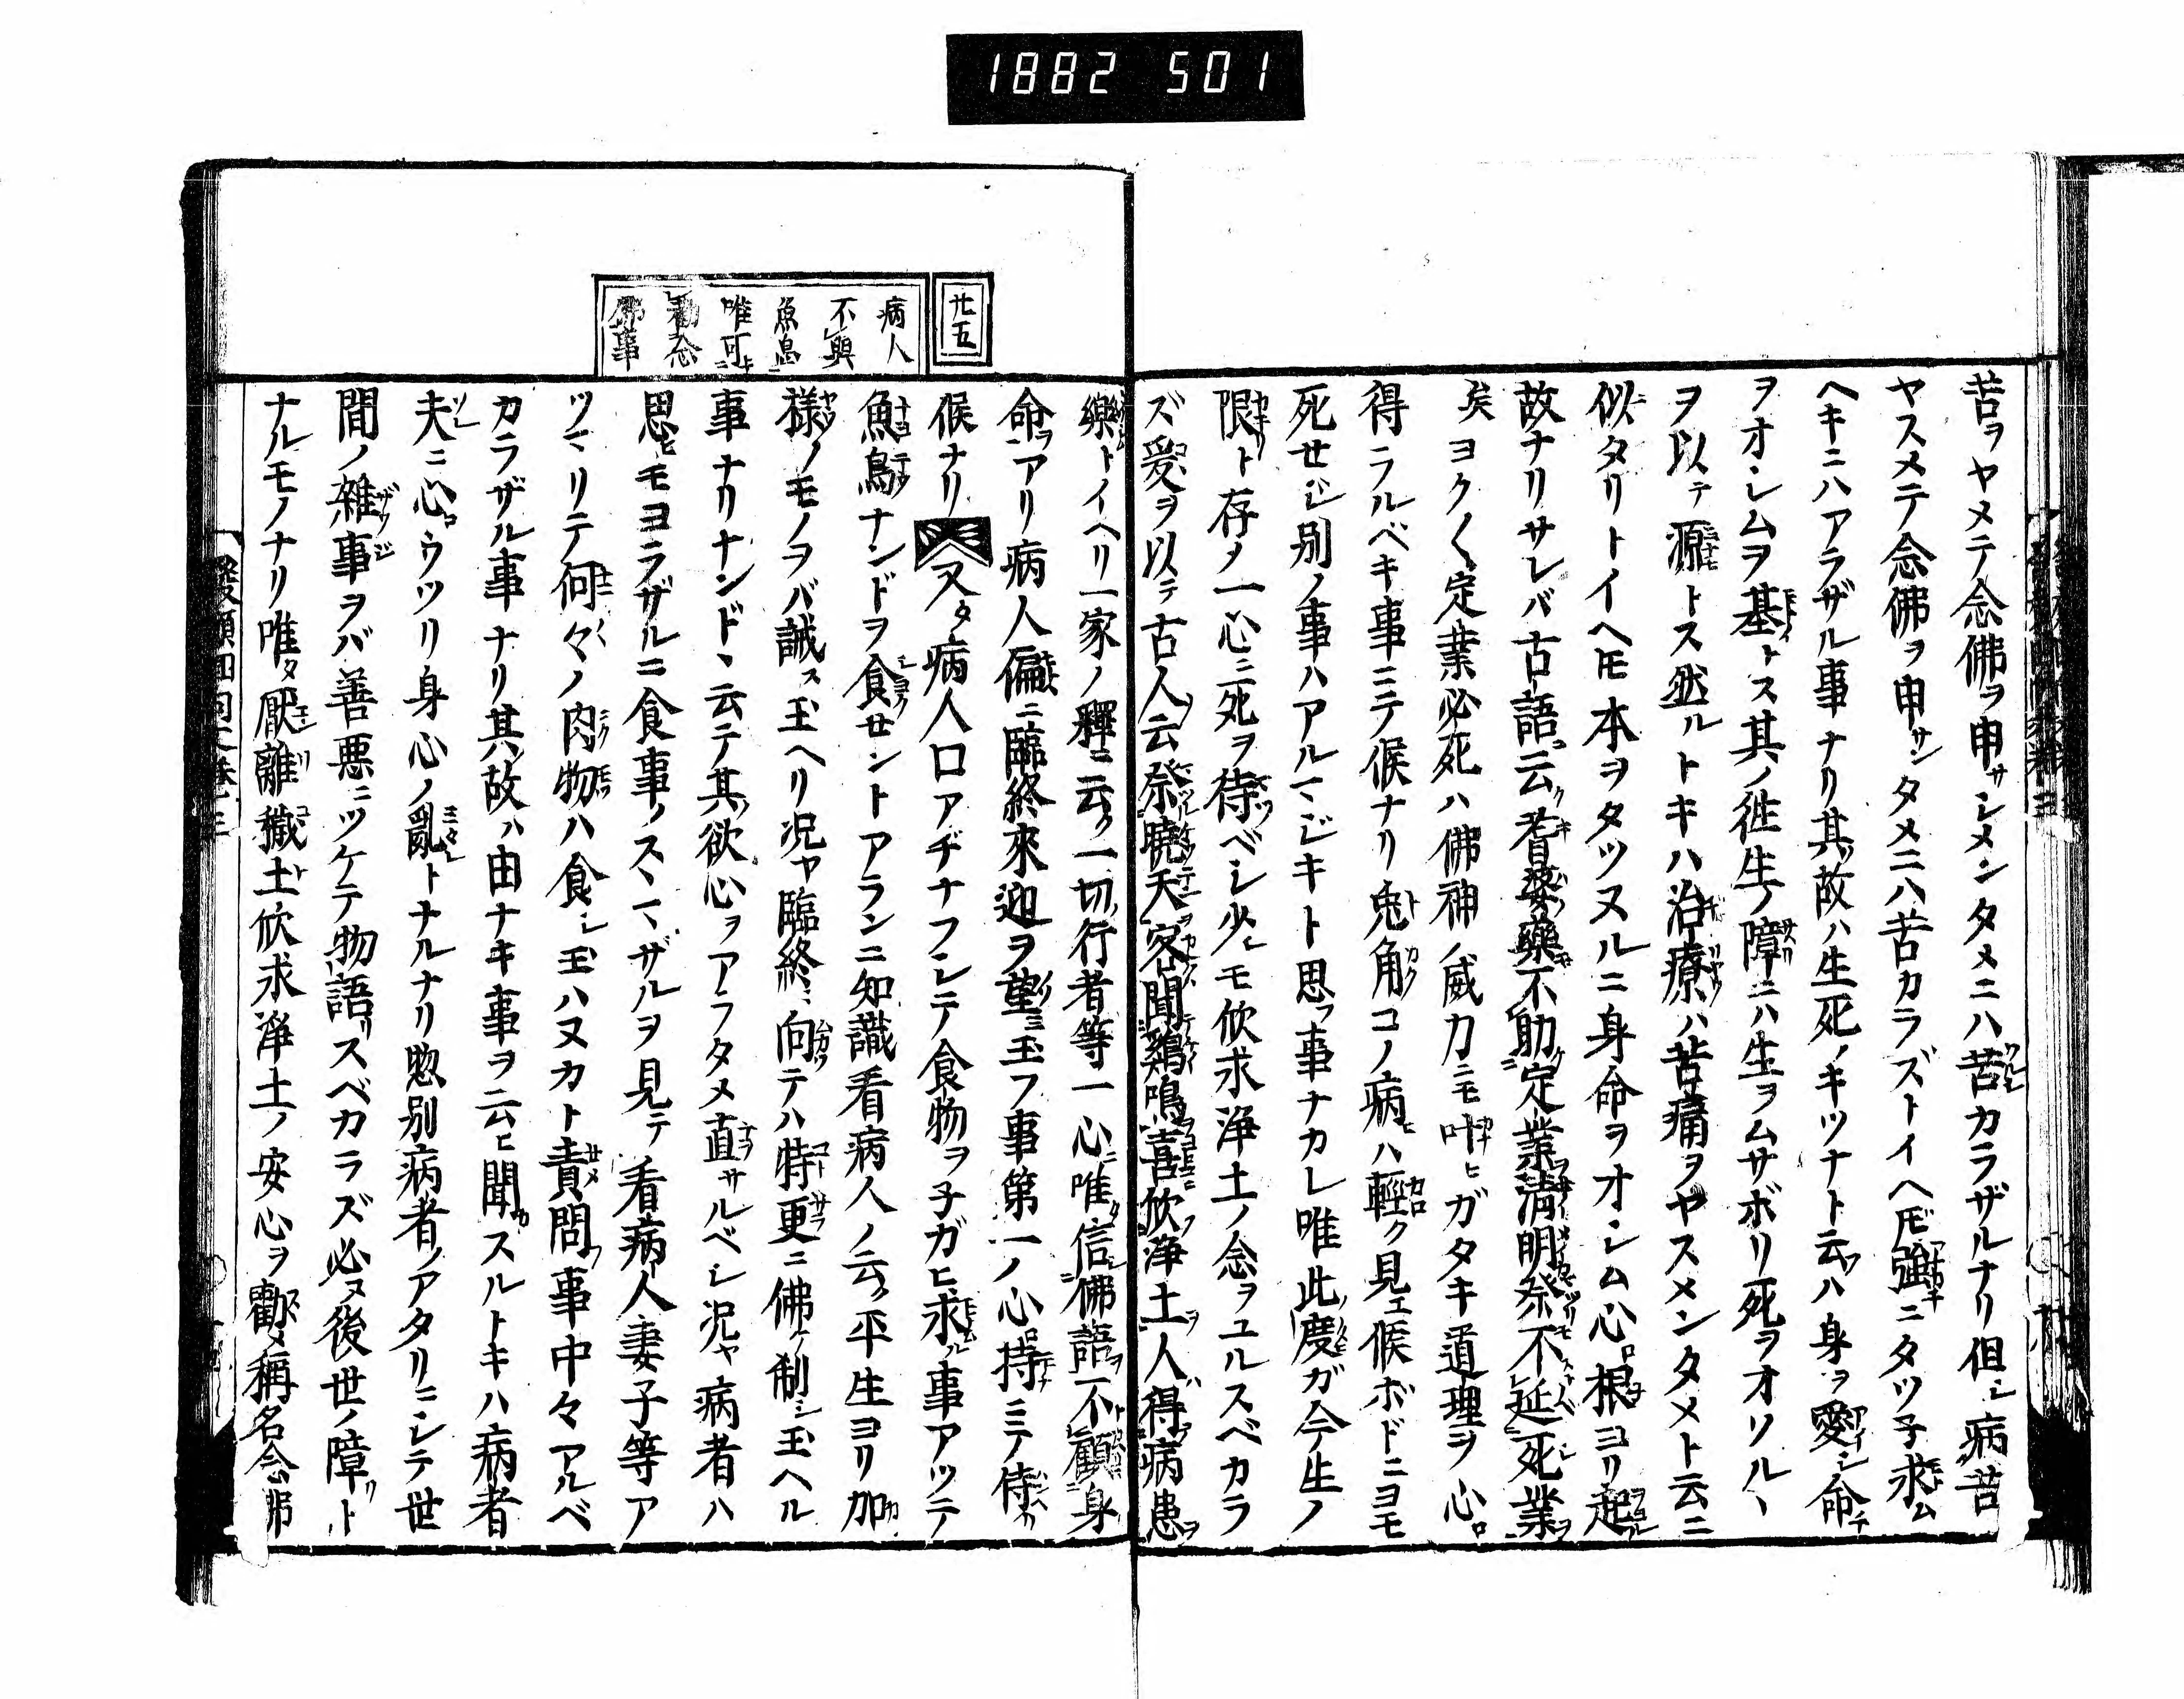 1882 501
苦ヲヤメテ念佛ヲ申サレメンタメニハ苦カラザルナリ但シ病苦
ヤスメテ念佛ヲ申サンタメニハ苦カラズトイヘ𪜈強ニタツ子求ム
ヘキニハアラザル事ナリ其故ハ生死ノキツナト云ハ身ヲ愛シ命
ヲオシムヲ基トス其ノ徃生ノ障ニハ生ヲムサボリ死ヲオソルヽ
ヲ以テ源トス然ルトキハ治療ハ苦痛ヲヤスメンタメト云ニ
似タリトイヘ𪜈本ヲタツヌルニ身命ヲオシム心根ヨリ起
故ナリサレバ古語云耆婆藥不助定業淸明祭不延死業
矣ヨク〱定業必死ハ佛神ノ威力ニモ叶ヒガタキ道理ヲ心
得ラルベキ事ニテ候ナリ兎角コノ病ハ輕ク見エ候ボドニヨモ
死せジ別ノ事ハアルマジキト思フ事ナカレ唯此度ガ今生ノ
限ト存メ一心ニ死ヲ待ベシ少シモ欣求浄土ノ念ヲユルスベカラ
ズ爰ヲ以テ古人云祭曉天客聞鷄鳴喜欣浄土人得病患
樂トイヘリ一家ノ釋ニ云ク一切行者等一心唯信佛語不顧身
命アリ病人偏ニ臨終來迎ヲ望ミ玉フ事第一ノ心持ニテ侍
候ナリ又タ病人口アヂナフシテ食物ヲ子ガヒ求ル事アツテ
魚鳥ナンドヲ食セントアランニ知識看病人ノ云ク平生ヨリ加
様ノモノヲバ誡ス玉ヘリ況ヤ臨終ニ向テハ特更ニ佛ケ制シ玉ヘル
事ナリナンドヽ云テ其欲心ヲアラタメ直サルベシ況ヤ病者ハ
思ヒモヨラザルニ食事ノスヽマザルヲ見テ看病人妻子等ア
ツマリテ何々ノ肉物ハ食シ玉ハヌカト責問フ事中々アルベ
カラザル事ナリ其故ハ由ナキ事ヲ云ヒ聞カスルトキハ病者
夫ニ心ウツリ身心ノ亂トナルナリ惣別病者ノアタリニシテ世
間ノ雜事ヲバ善悪ニツケテ物語リスベカラズ必ヌ後世ノ障リト
ナルモノナリ唯タ厭離穢土欣求淨土ノ安心ヲ勸メ稱名念佛
廿五
病人
不與
魚鳥
唯可
勸念
佛事
發願回向文巻十三